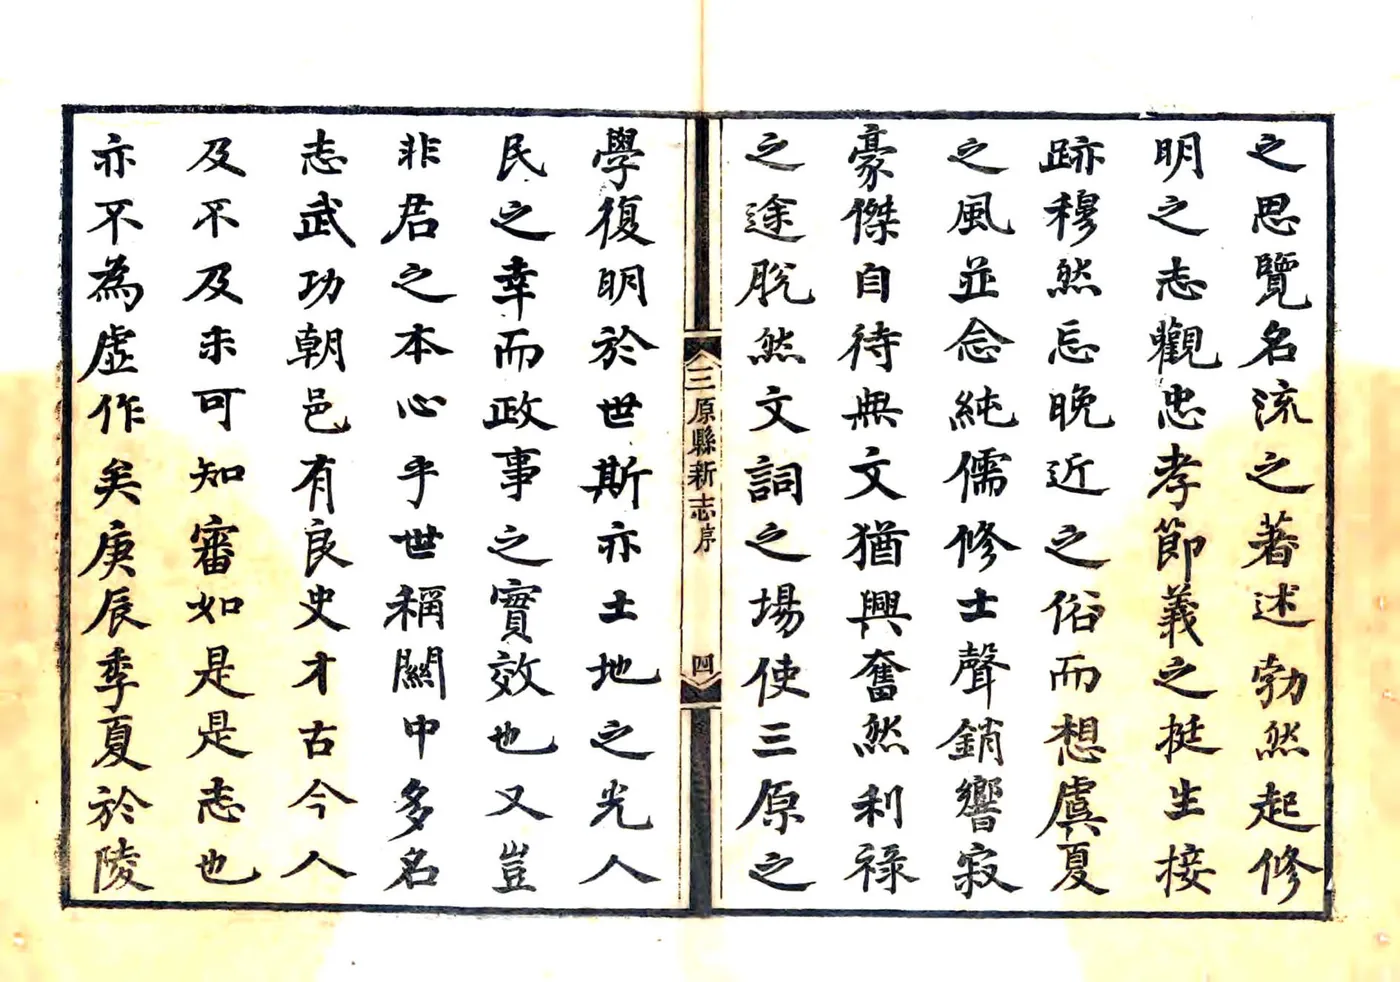 之思覽名流之著述勃然起修
明之志觀忠孝節義之挺生接
跡穆然忘晚近之俗而想虞夏
之風並念純儒修士聲銷響寂
豪傑自待無文猶興奮然利祿
之途脫然文詞之場使三原之
三原縣新志序
四
學復明於世斯亦土地之光人
民之幸而政事之實效也又豈
非君之本心乎世稱關中多名
志武功朝邑有良史才古今人
及不及未可知審如是是志也
亦不為虛作矣庚辰季夏於陵